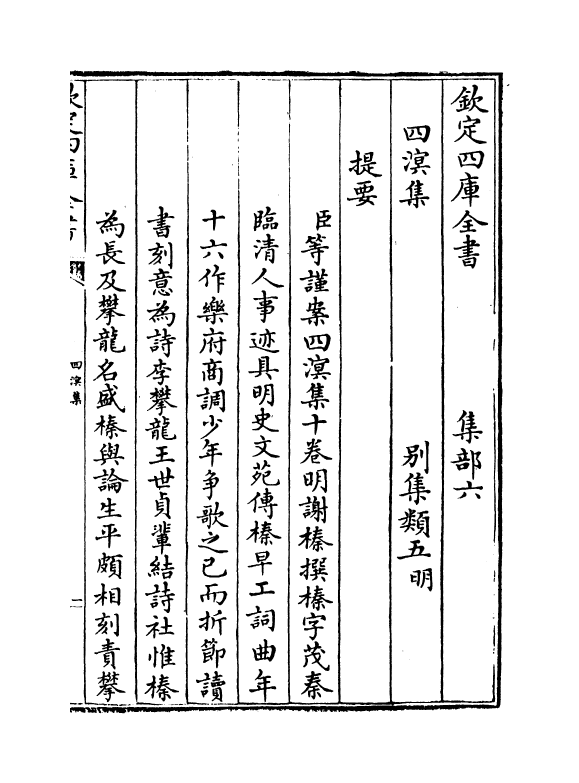 欽定四庫全書　集部六
四溟集　別集類五明
提要
臣等謹案四溟集十卷明謝榛撰榛字茂秦
臨清人事迹具明史文苑傳榛早工詞曲年
十六作樂府商調少年争歌之已而折節讀
書刻意為詩李攀龍王世貞輩結詩社惟榛
為長及攀龍名盛榛與論生平頗相刻責攀
欽定四庫全書
四溟集